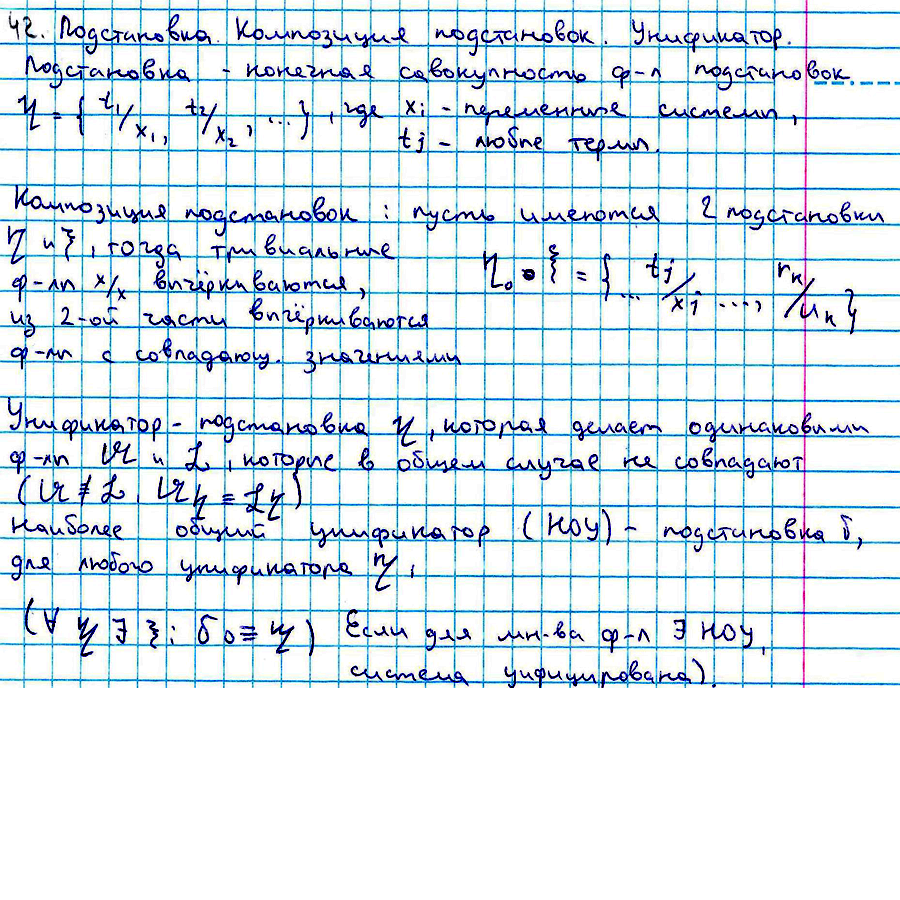 42. Подстановка. Композиция подстановок. Унификатор.
Подстановка - конечная совокупность ф-л подстановок
η = { t₁/x₁, t₂/x₂, ...}, где xi - переменные системы,
tj - любые термы.
Композиция подстановок: пусть имеются 2 подстановки
η и ξ, тогда тривиальные
ф-лы x/x вычёркиваются,
из 2-ой части вычёркиваются
ф-лы с совпадающ. значениями
η ∘ ξ = {... tj/xj ..., rk/uk}
Унификатор - подстановка η, которая делает одинаковыми
ф-лы 𝔄 и ℒ, которые в общем случае не совпадают
(𝔄 ≢ ℒ, 𝔄η ≡ ℒη)
Наиболее общий унификатор (НОУ) - подстановка б,
для любого унификатора η,
(∀ η ∃ ξ: б∘ ≡ η) Если для мн-ва ф-л ∃ НОУ,
система унифицирована).